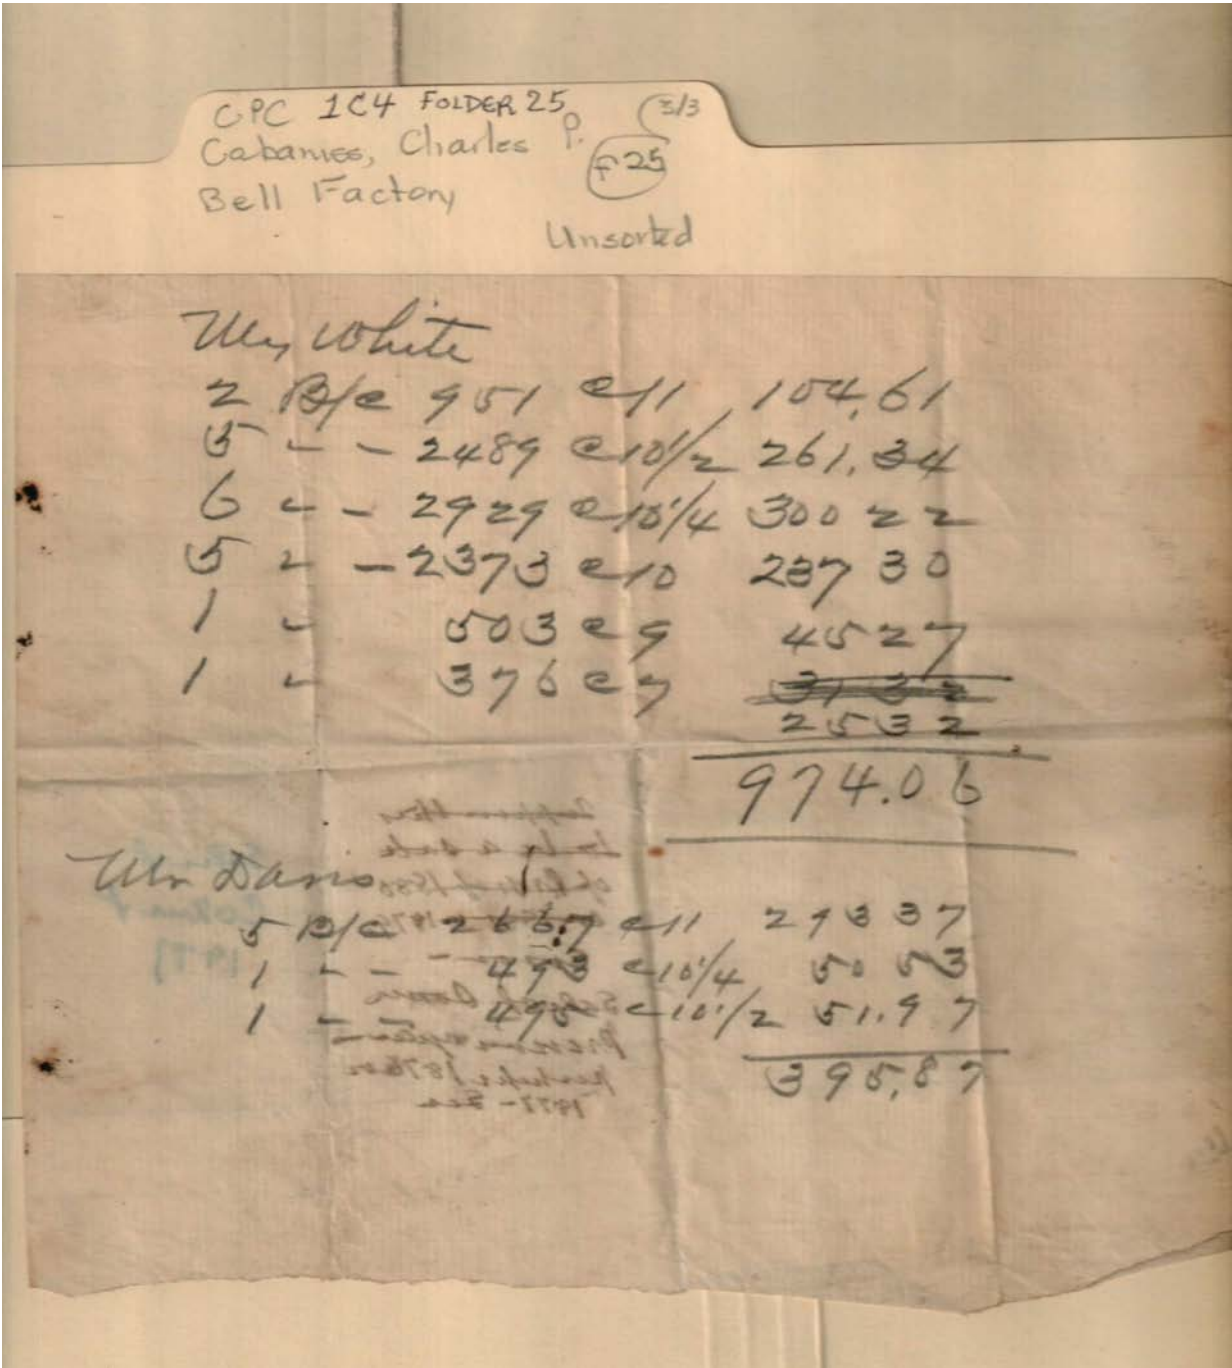 CPC 1C4 FOLDER 25 3/3
Cabaniss, Charles P. F 25
Bell Factory
Unsorted
White
2 B/C 951 @ 11 104.61
5 " - 2489 @ 10 1/2 261.34
6 " - 2929 @ 10 1/4 300 22
5 " - 2373 @ 10 237 30
1 " 503 @ 9 45 27
1 " 376 @ 7 31 32
25 32
974.06
Mr Davis
5 B/C 2667 @ 11 293 37
1 " - 493 @ 10 1/4 50 53
1 " - 495 @ 10 1/2 51.97
395.87